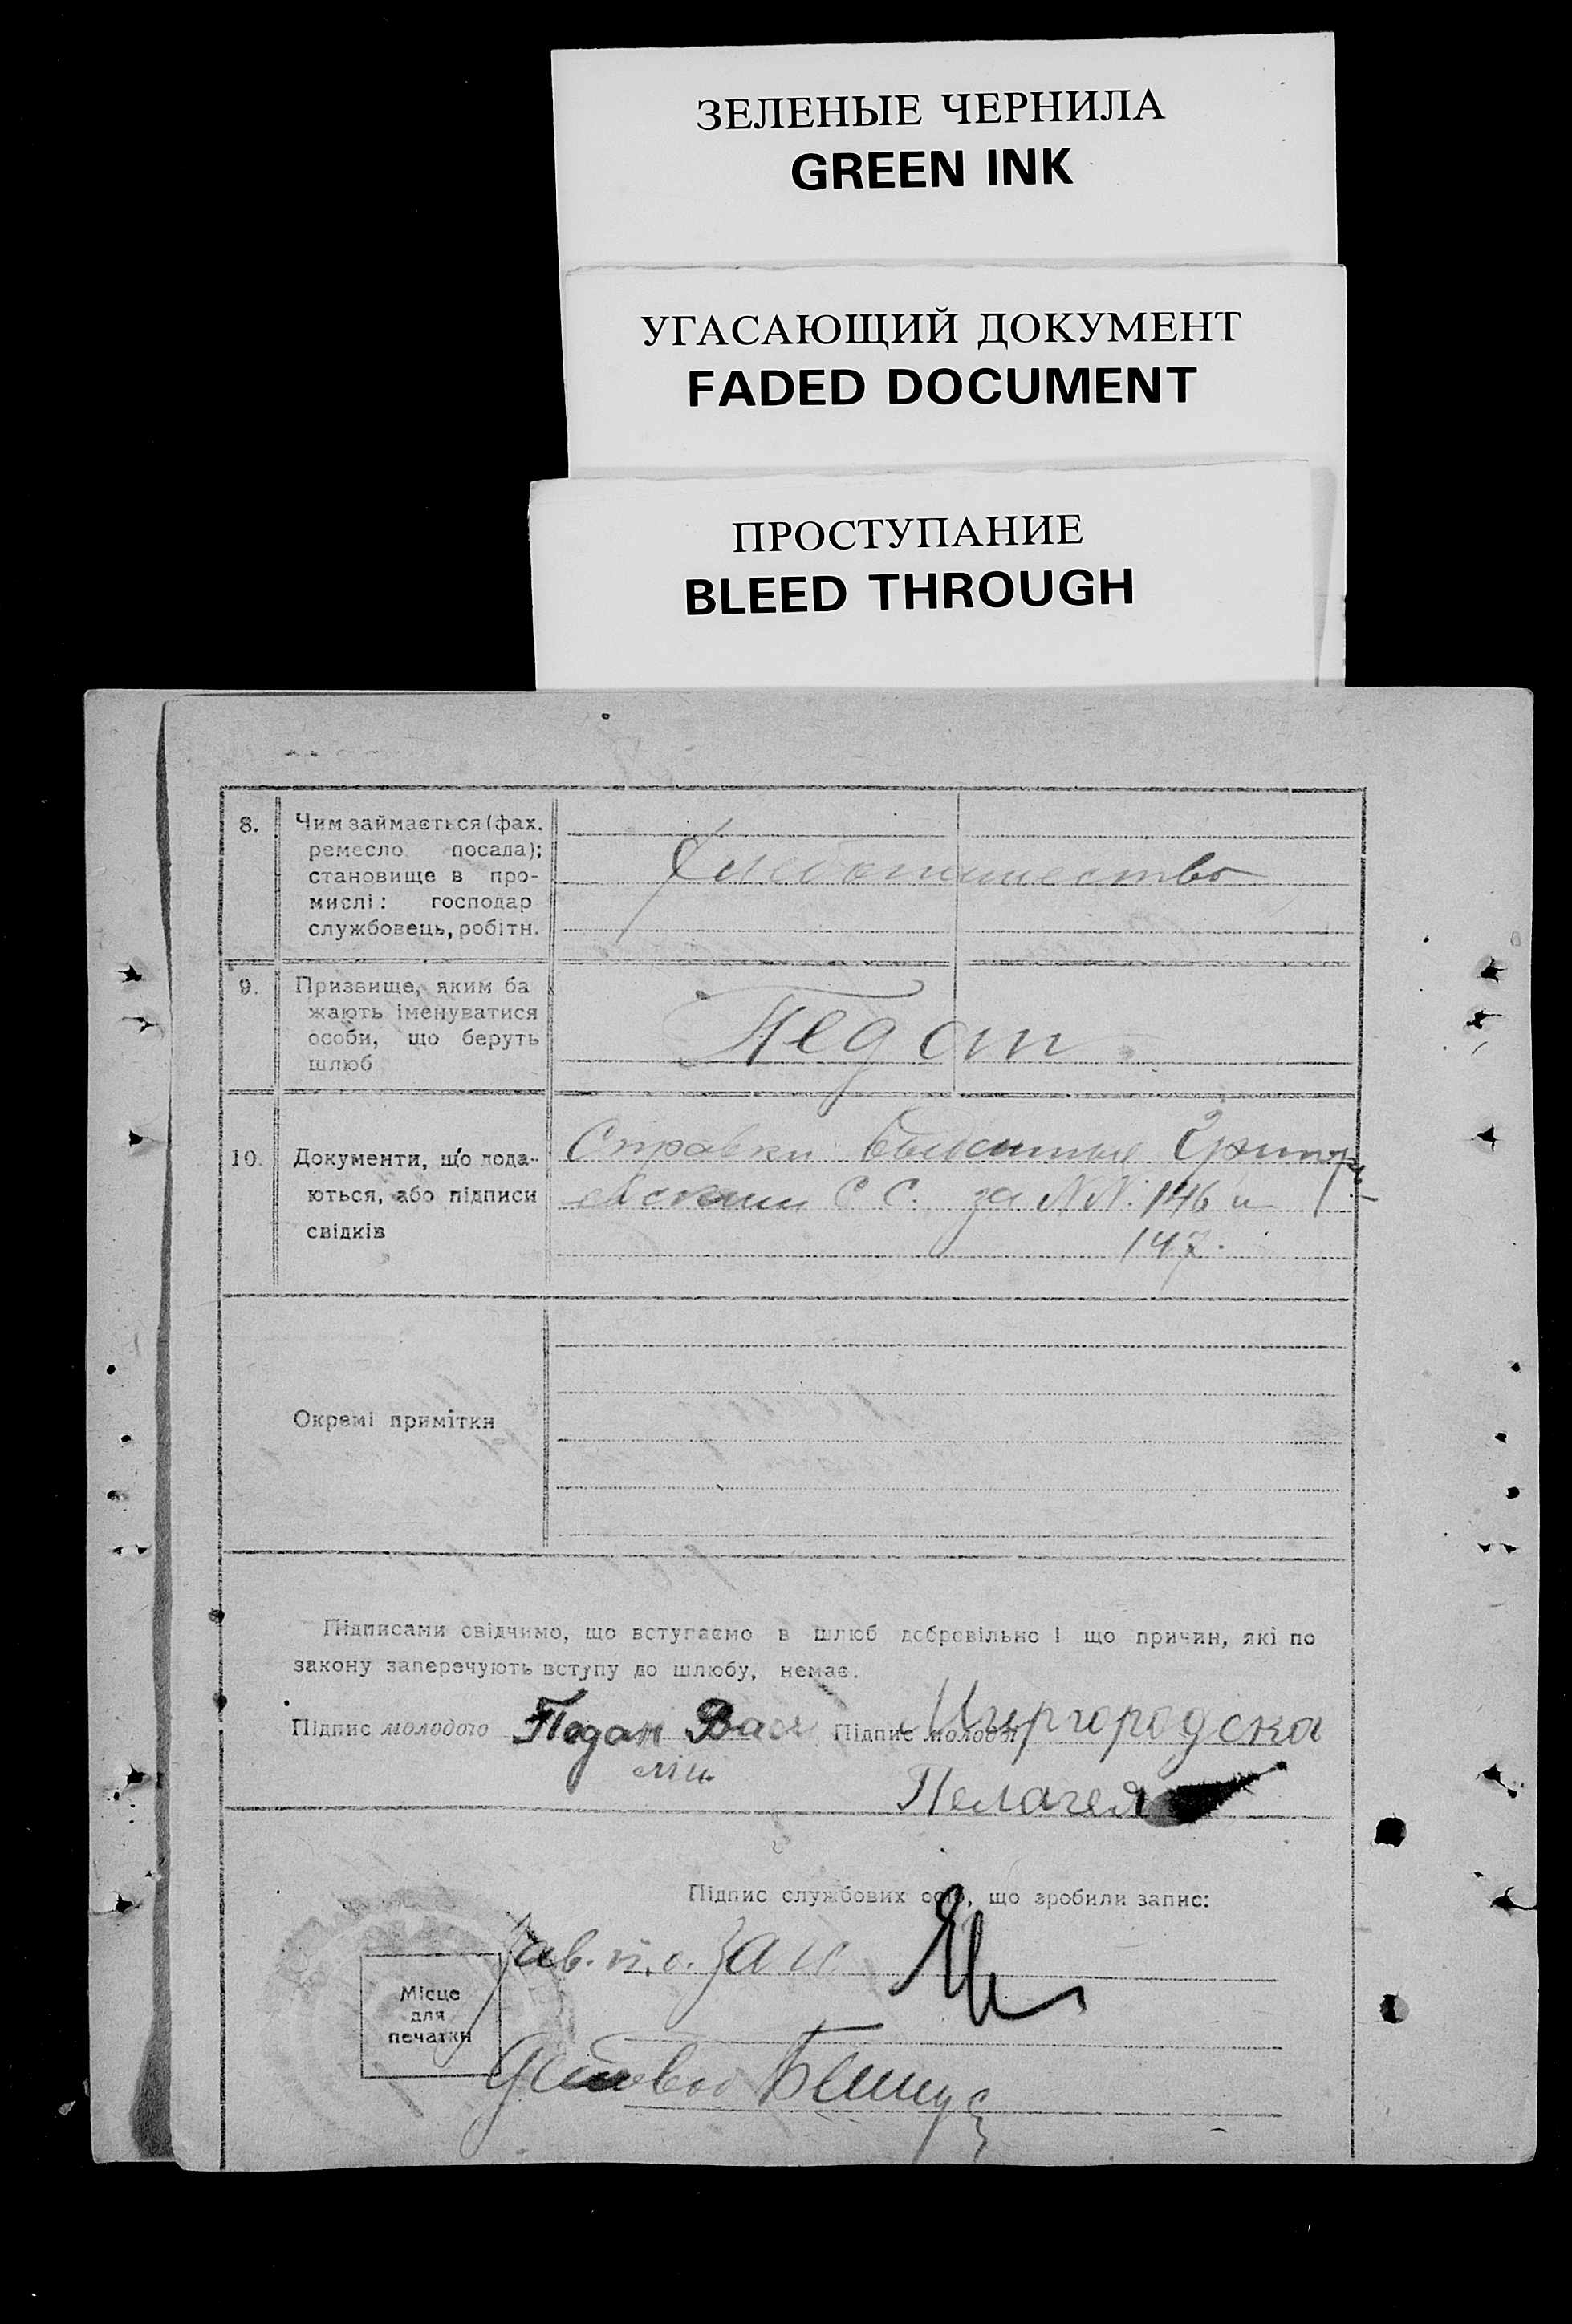 ЗЕЛЕНЫЕ ЧЕРНИЛА
GREEN INK
УГАСАЮЩИЙ ДОКУМЕНТ
FADED DOCUMENT
ПРОСТУПАНИЕ
BLEED THROUGH
8. Чим займається (фах.
ремесло посада);
становище в про-
мислі: господар
службовець, робітн.
Хлебопашество
9. Призвище, яким ба
жають іменуватися
особи, що беруть
шлюб
Педан
10. Документи, що пода-
ються, або підписи
свідків
Справки
С С. за NN: 146 и
147.
Окремі примітки
Підписами свідчимо, що вступаємо в шлюб добровільно і що причин, які по
закону заперечують вступу до шлюбу, немає.
Підпис молодого Педан Васи Підпис молодої Миргородска
Пелагея
Підпис службових осіб, що зробили запис:
Зав.
Місце
для
печатки